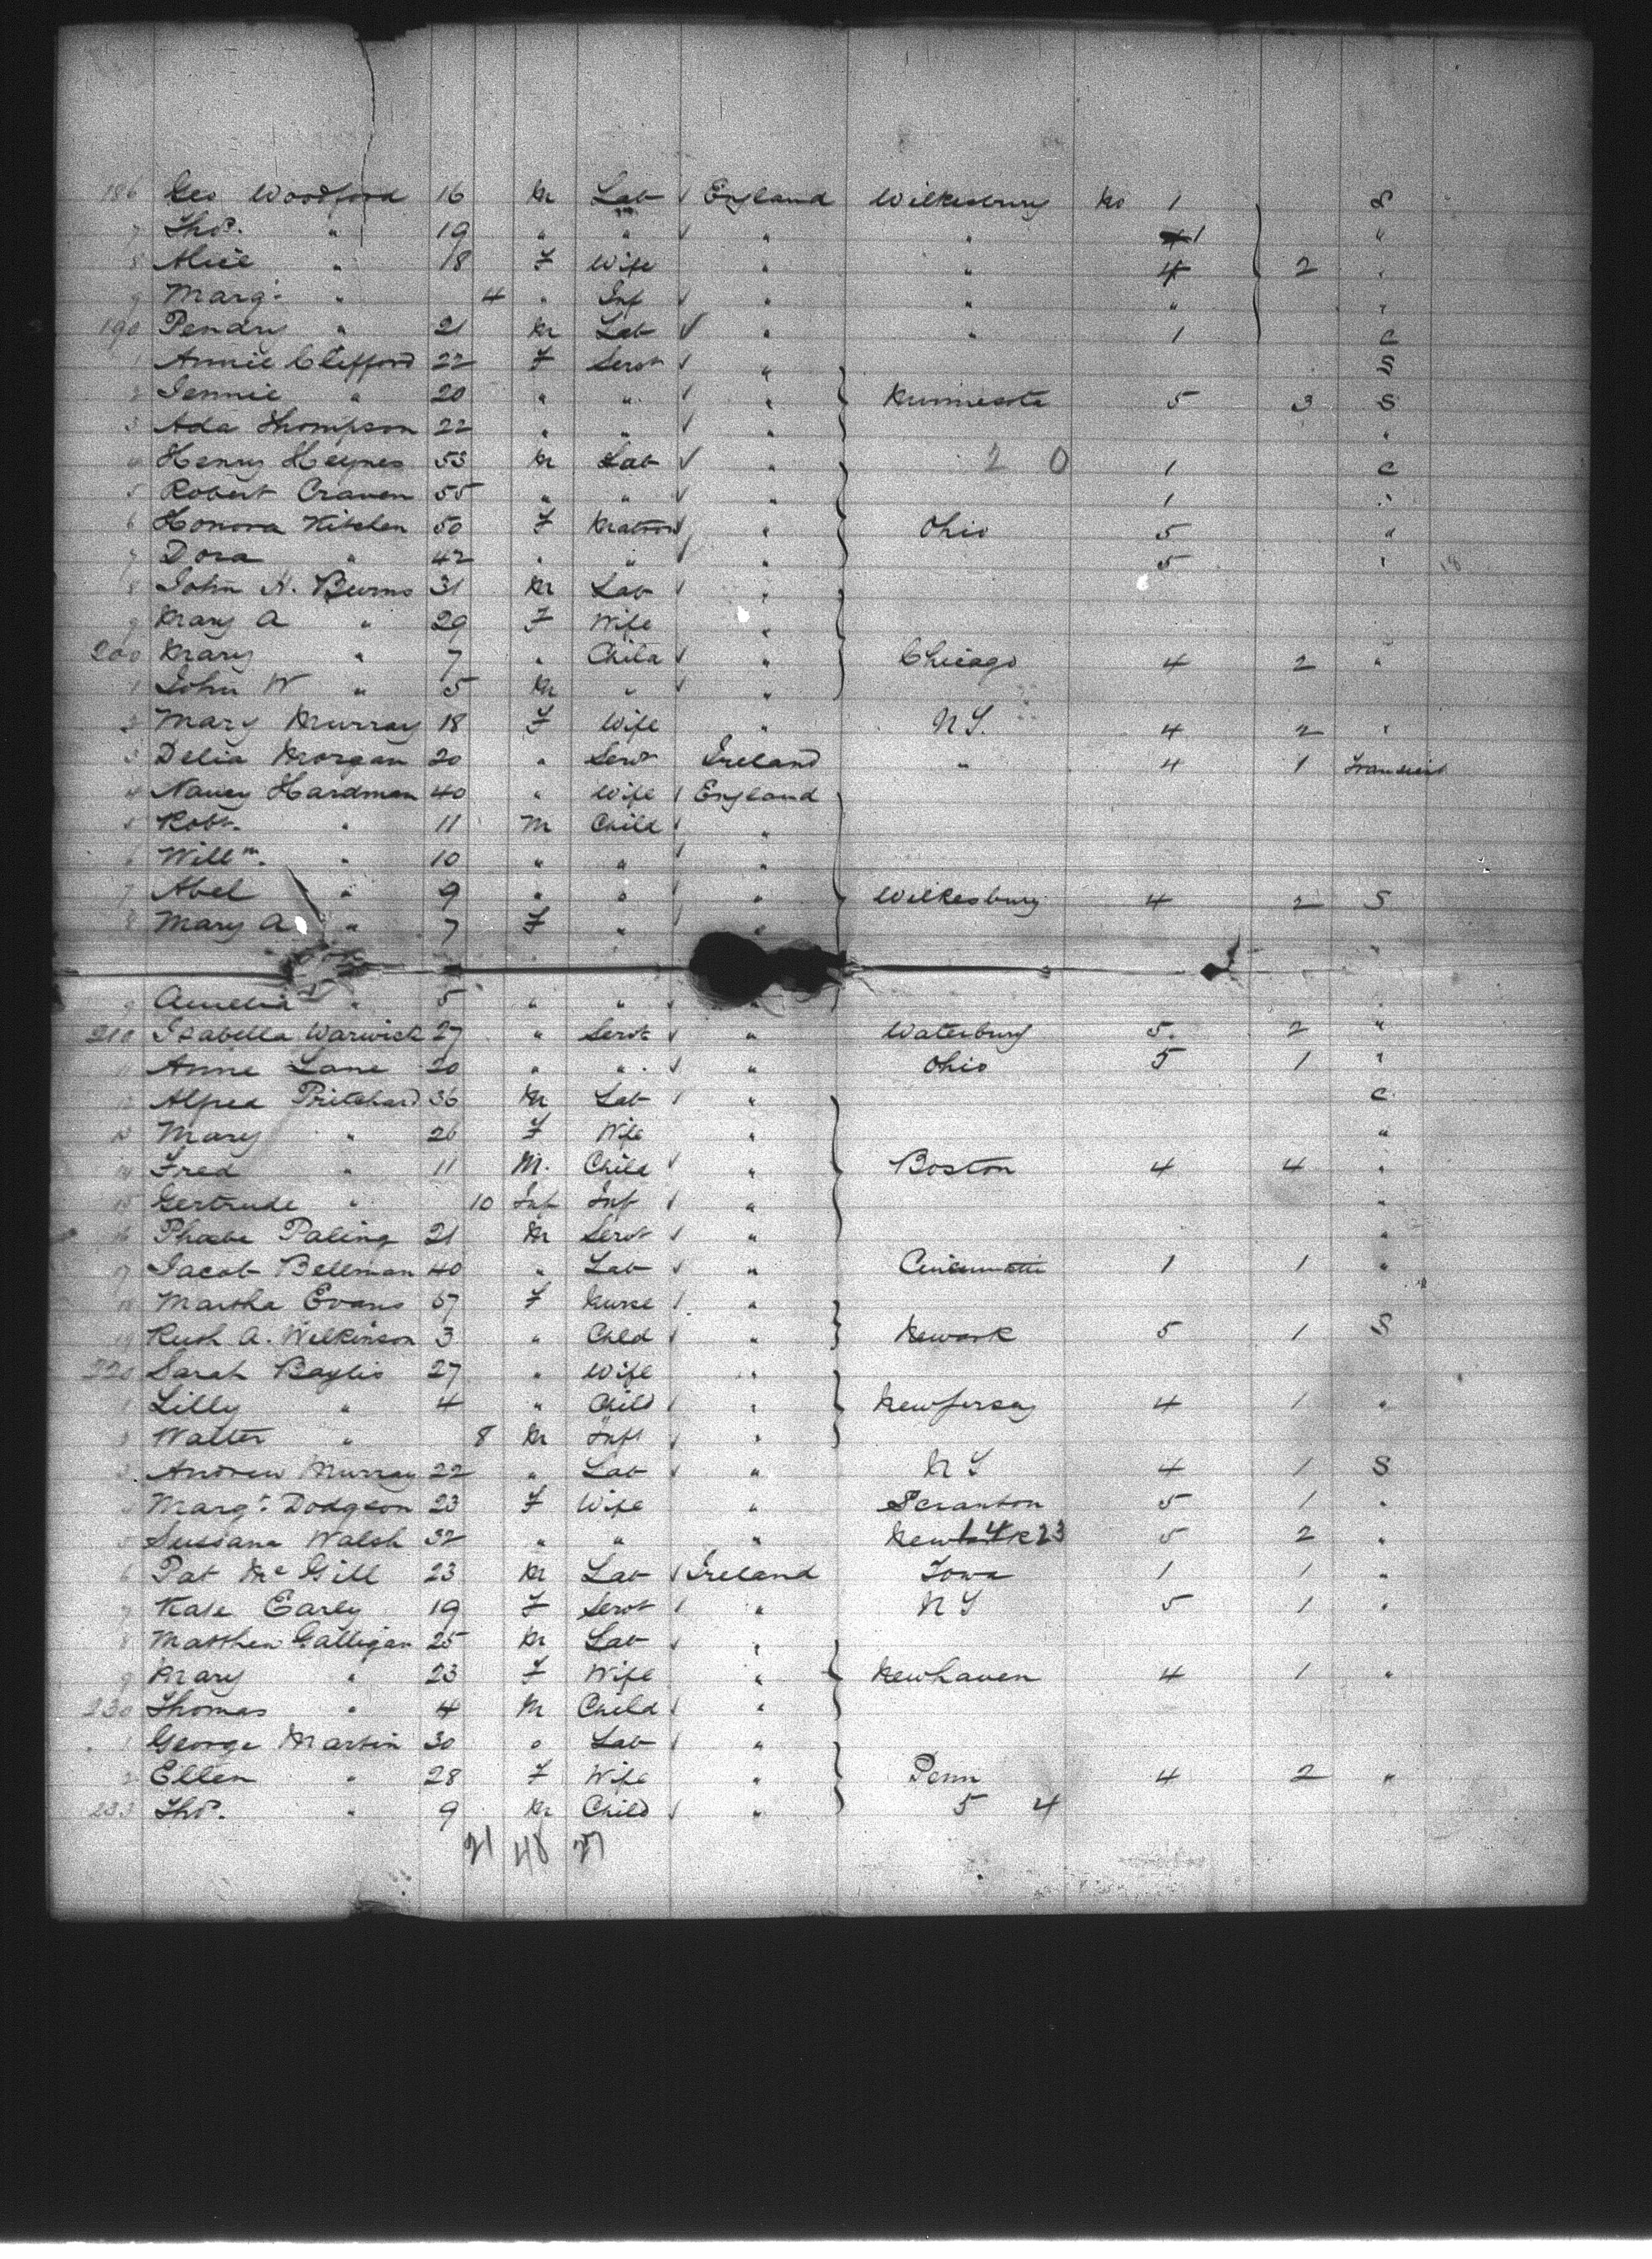 186 Geo Woodford 16 M Lab England Wilkesbury No 1 S
7 Thos. " 19 " " " " 1 "
8 Alice " 18 F Wife " " 4 2 "
9 Marg't " 4 " Inf " " " "
190 Pendry " 21 M Lab " " 1 C
1 Annie Clifford 22 F Servt " S
2 Jennie " 20 " " " Minnesota 5 3 S
3 Ada Thompson 22 " " " "
4 Henry Heynes 53 M Lab " 2 0 1 C
5 Robert Craven 55 " " " 1 "
6 Honora Kitchen 50 F Matron " Ohio 5 "
7 Dora " 42 " " " 5 "
8 John H. Burns 31 M Lab "
9 Mary A " 29 F Wife "
200 Mary " 7 " Child " Chicago 4 2 "
1 John W " 5 M " "
2 Mary Murray 18 F Wife " N.Y. 4 2 "
3 Delia Morgan 20 " Servt Ireland " 4 1 Transient
4 Nancy Hardman 40 " Wife England
5 Robt. " 11 M Child "
6 Willm. " 10 " " "
7 Abel " 9 " " " Wilkesbury 4 2 S
8 Mary A " 7 F " "
9 Amelia " 5 " " " "
210 Isabella Warwick 27 " Servt " Waterbury 5 2 "
11 Annie Lane 20 " " " Ohio 5 1 "
12 Alfred Pritchard 36 M Lab " C
13 Mary " 26 F Wife " "
14 Fred " 11 M. Child " Boston 4 4 "
15 Gertrude " 10 Inf Inf " "
16 Phoebe Paling 21 M Servt " "
17 Jacob Bellman 40 " Lab " Cincinnatti 1 1 "
18 Martha Evans 57 F Nurse "
19 Ruth A. Wilkinson 3 " Child " Newark 5 1 S
220 Sarah Baylis 27 " Wife "
1 Lilly " 4 " Child " New Jersey 4 1 "
2 Walter " 8 M Inft "
3 Andrew Murray 22 " Lab " N Y 4 1 S
4 Marg't Dodgson 23 F Wife " Scranton 5 1 "
5 Sussana Walsh 32 " " " 23 5 2 "
6 Pat McGill 23 M Lab Ireland Iowa 1 1 "
7 Kate Early 19 F Servt " N Y 5 1 "
8 Matthew Galligan 25 M Lab "
9 Mary " 23 F Wife " Newhaven 4 1 "
230 Thomas " 4 M Child "
1 George Martin 30 " Lab "
2 Ellen " 28 F Wife " Penn 4 2 "
233 Thos. " 9 M Child " 5 4
21 48 27